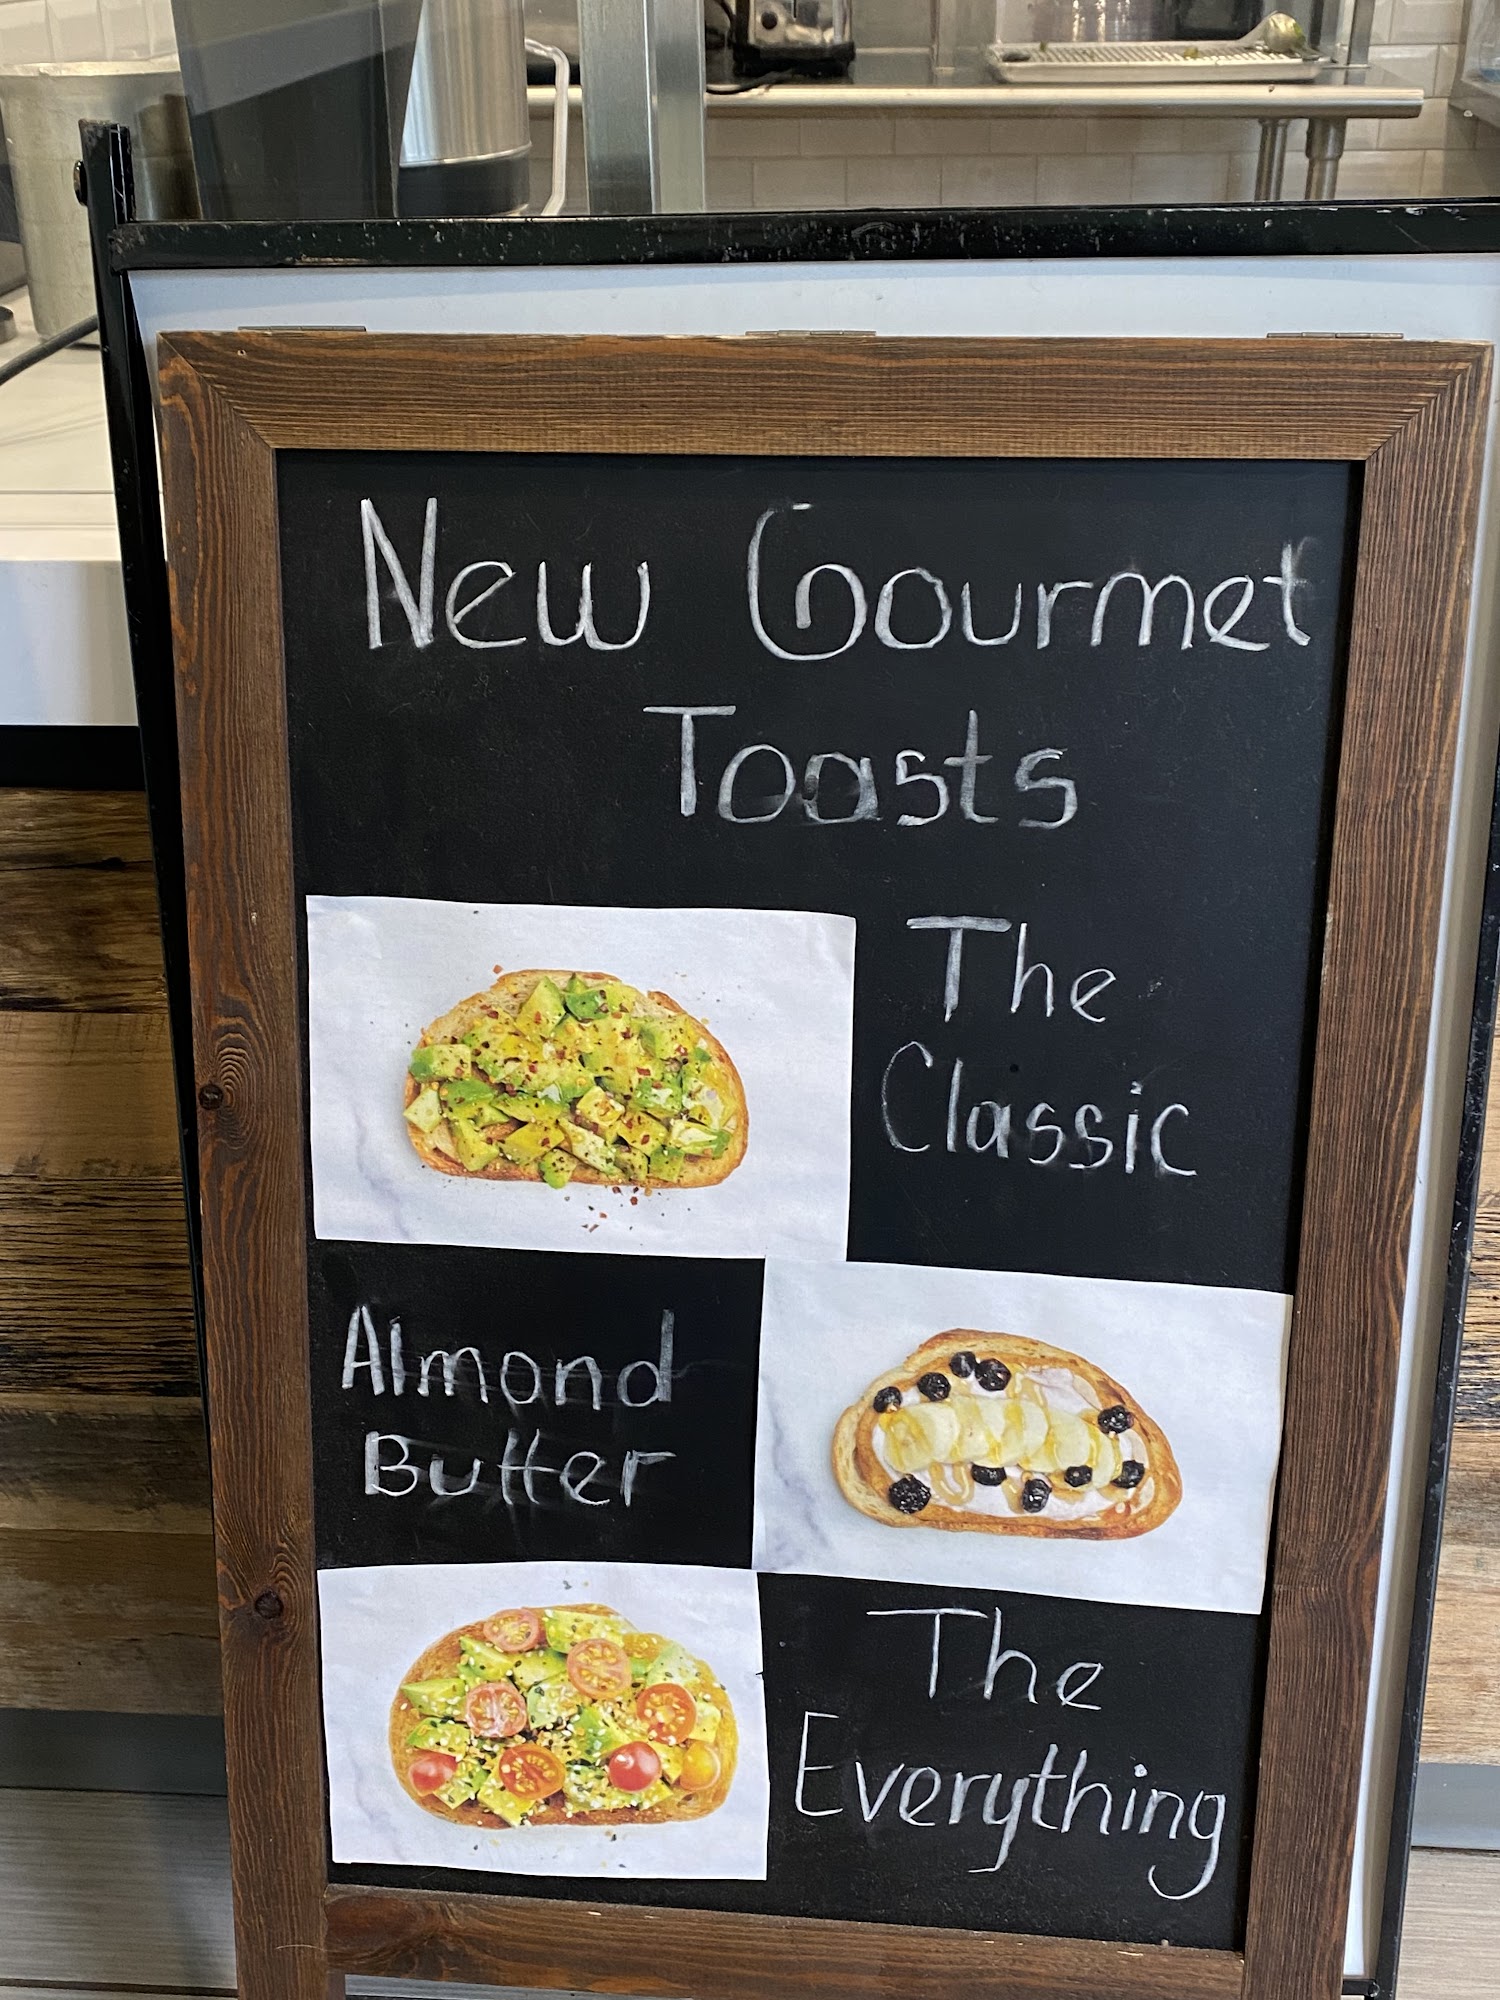 New Gourmet
Toasts
The
Classic
Almond
Butter
The
Everything